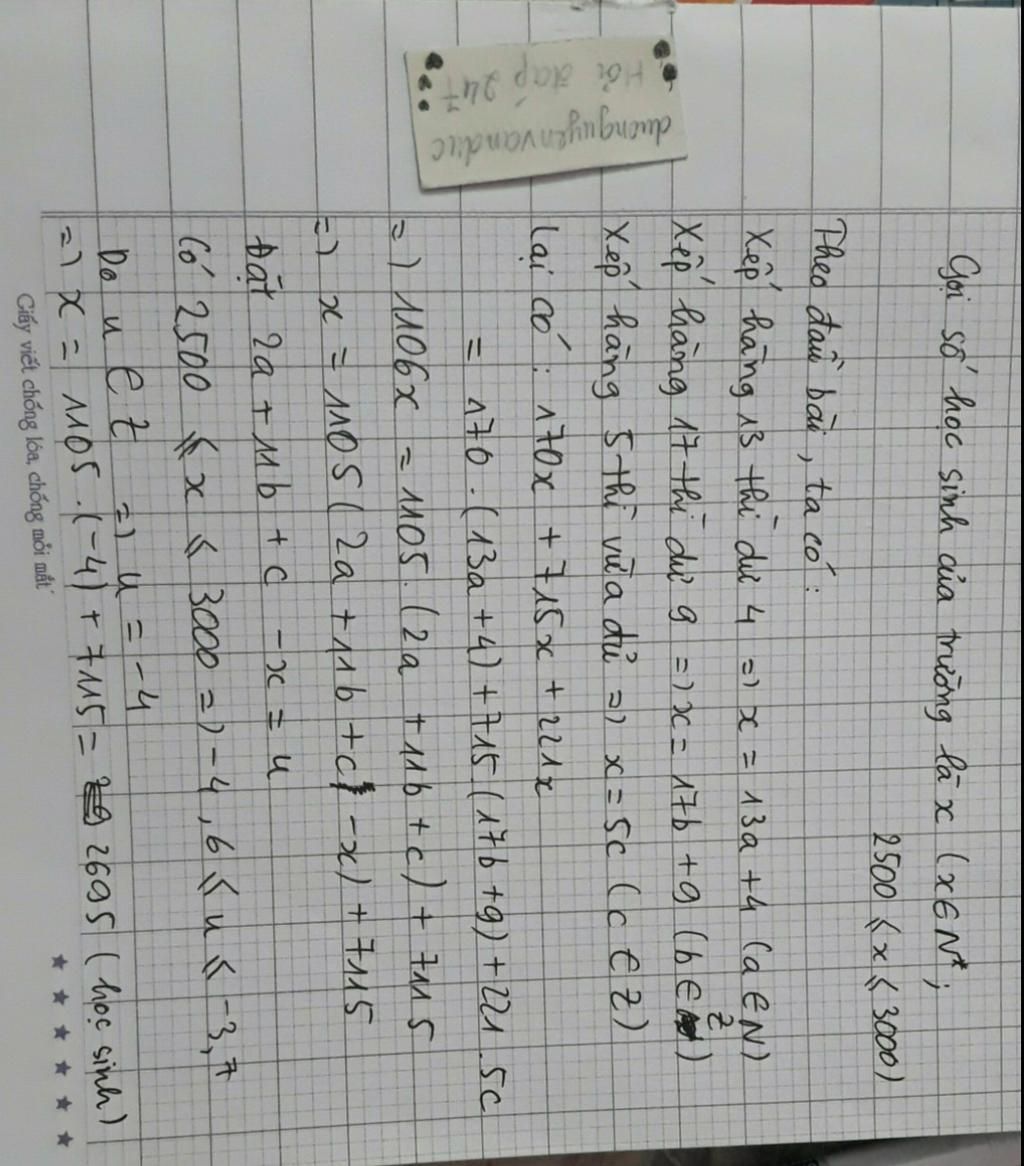 duongnguyenvanduc
Hỏi đáp 247
Gọi số học sinh của trường là x (x∈N*;
2500 ≤ x ≤ 3000)
Theo đầu bài, ta có:
Xếp hàng 13 thì dư 4 => x = 13a + 4 (a∈N)
Xếp hàng 17 thì dư 9 => x = 17b + 9 (b∈Z)
Xếp hàng 5 thì vừa đủ => x = 5c (c∈Z)
Lại có: 170x + 715x + 221x
= 170.(13a+4) + 715(17b+9) + 221.5c
=> 1106x = 1105.(2a + 11b + c) + 7115
=> x = 1105(2a + 11b + c - x) + 7115
Đặt 2a + 11b + c - x = u
Có 2500 ≤ x ≤ 3000 => -4,6 ≤ u ≤ -3,7
Do u ∈ Z => u = -4
=> x = 1105.(-4) + 7115 = 2695 (học sinh)
Giấy viết chống lóa, chống mỏi mắt